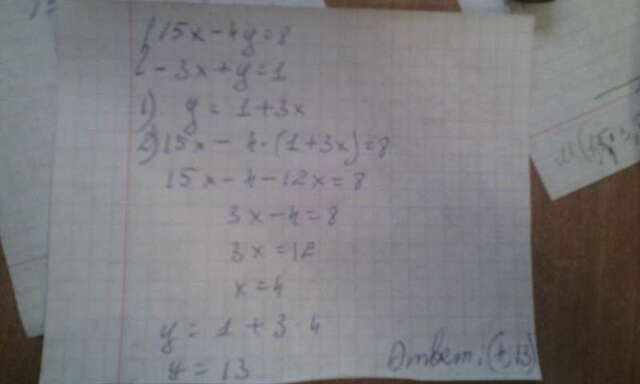 { 15x - 4y = 8
{ - 3x + y = 1
1) y = 1 + 3x
2) 15x - 4·(1+3x) = 8
15x - 4 - 12x = 8
3x - 4 = 8
3x = 12
x = 4
y = 1 + 3·4
y = 13
Ответ: (4, 13)